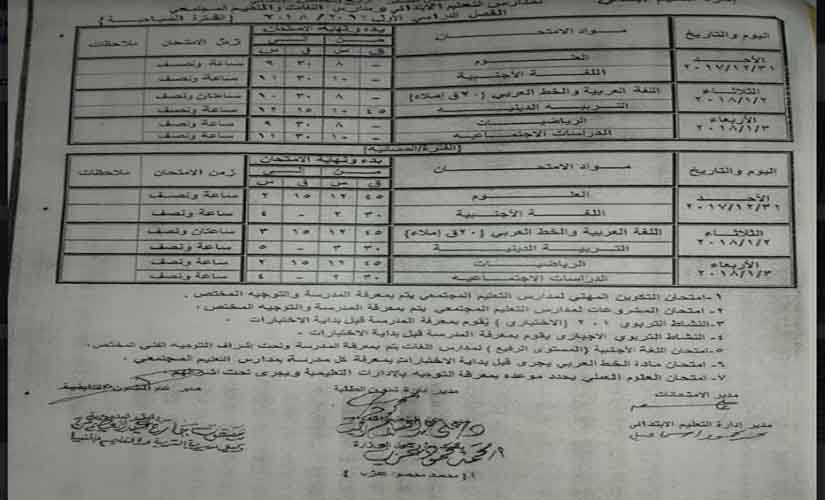 مدارس التعليم الابتدائي ومدارس اللغات والتعليم المجتمعي
الفصل الدراسي الأول ٢٠١٧ / ٢٠١٨ (الفترة الصباحية)
اليوم والتاريخ مواد الامتحان بدء ونهاية الامتحان زمن الامتحان ملاحظات
من إلى
ق س ق س
الأحد ٢٠١٧/١٢/٣١ العلوم - ٨ ٣٠ ٩ ساعة ونصف
اللغة الأجنبية - ١٠ ٣٠ ١١ ساعة ونصف
الثلاثاء ٢٠١٨/١/٢ اللغة العربية والخط العربي (٢٠ق إملاء) - ٨ ٣٠ ١٠ ساعتان ونصف
التربية الدينية ٤٥ ١٠ ١٥ ١٢ ساعة ونصف
الأربعاء ٢٠١٨/١/٣ الرياضيات - ٨ ٣٠ ٩ ساعة ونصف
الدراسات الاجتماعيه - ١٠ ٣٠ ١١ ساعة ونصف
(الفترة/المسائية)
اليوم والتاريخ مواد الامتحان بدء ونهاية الامتحان زمن الامتحان ملاحظات
من إلى
ق س ق س
الأحد ٢٠١٧/١٢/٣١ العلوم ٤٥ ١٢ ١٥ ٢ ساعة ونصف
اللغة الأجنبية ٣٠ ٢ - ٤ ساعة ونصف
الثلاثاء ٢٠١٨/١/٢ اللغة العربية والخط العربي (٢٠ق إملاء) ٤٥ ١٢ ١٥ ٣ ساعتان ونصف
التربية الدينية ٣٠ ٣ - ٥ ساعة ونصف
الأربعاء ٢٠١٨/١/٣ الرياضيات ٤٥ ١٢ ١٥ ٢ ساعة ونصف
الدراسات الاجتماعيه ٣٠ ٢ - ٤ ساعة ونصف
١-امتحان التكوين المهني لمدارس التعليم المجتمعي يتم بمعرفة المدرسة والتوجيه المختص .
٢- امتحان المشروعات لمدارس التعليم المجتمعي يتم بمعرفة المدرسة والتوجيه المختص .
٣-النشاط التربوي ١ ، ٢ (الاختياري) يقوم بمعرفة المدرسة قبل بداية الاختبارات .
٤- النشاط التربوي الاجباري يقوم بمعرفة المدرسة قبل بداية الاختبارات .
٥-امتحان اللغة الأجنبية (المستوى الرفيع) لمدارس اللغات يتم بمعرفة المدرسة وتحت إشراف التوجيه الفني المختص .
٦- امتحان مادة الخط العربي يجرى قبل بداية الاختبارات بمعرفة كل مدرسة بمدارس التعليم المجتمعي .
٧- امتحان العلوم العملي يحدد موعده بمعرفة التوجيه بالادارات التعليمية ويجرى تحت اشرافهم
مدير الامتحانات مدير إدارة شئون الطلبة
مدير إدارة التعليم الابتدائي